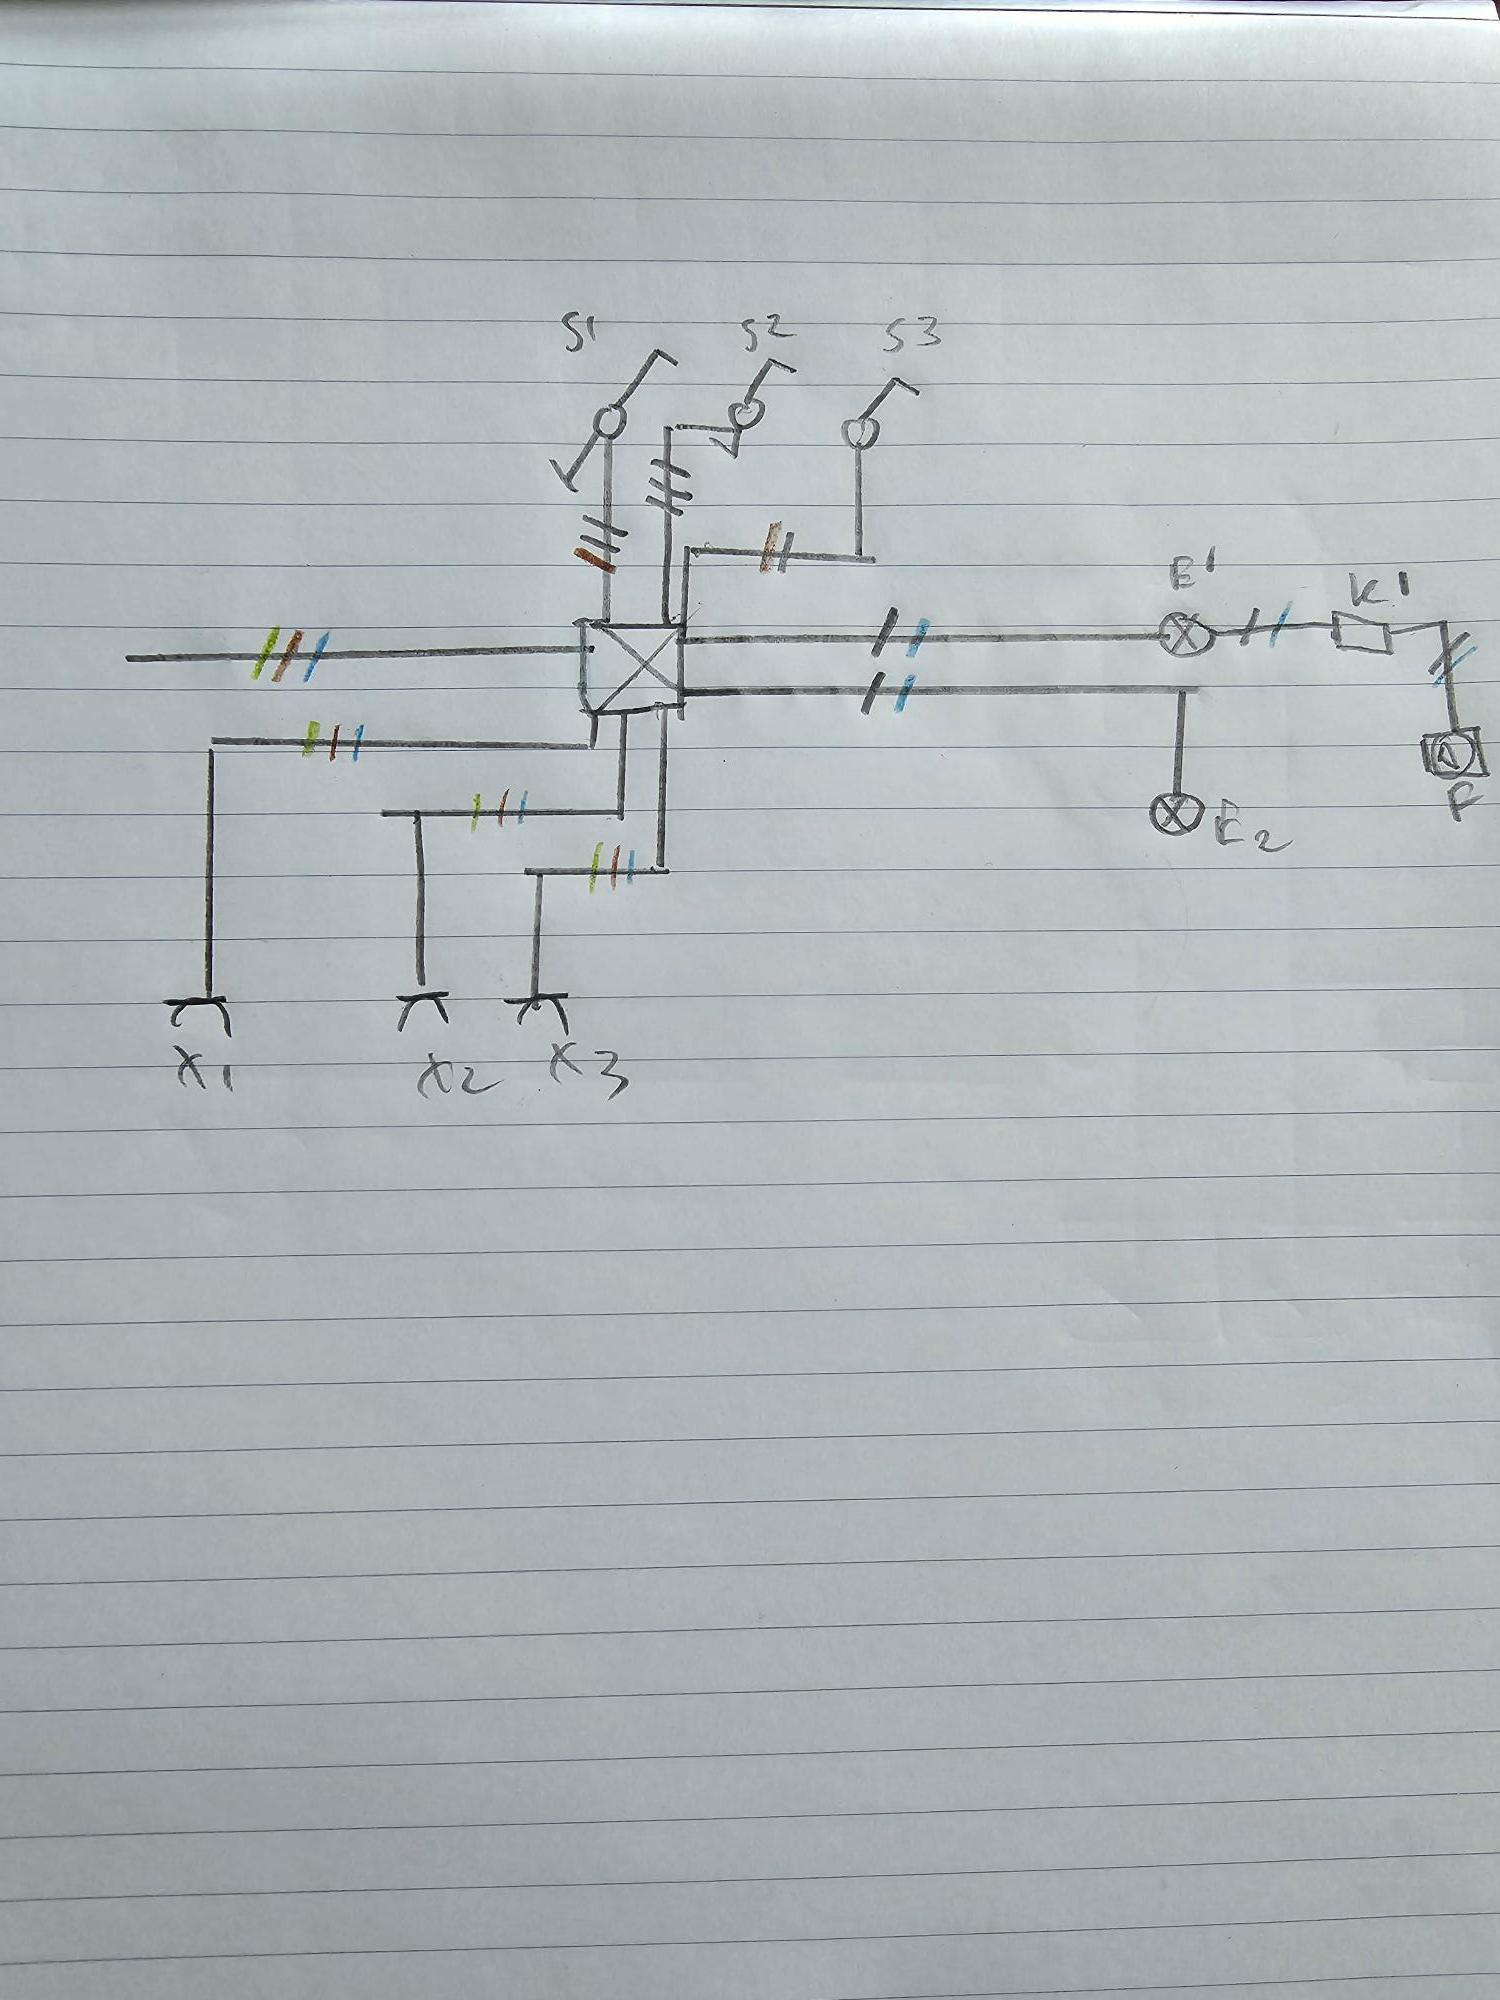 S1 S2 S3
E1 K1
F
E2
X1 X2 X3